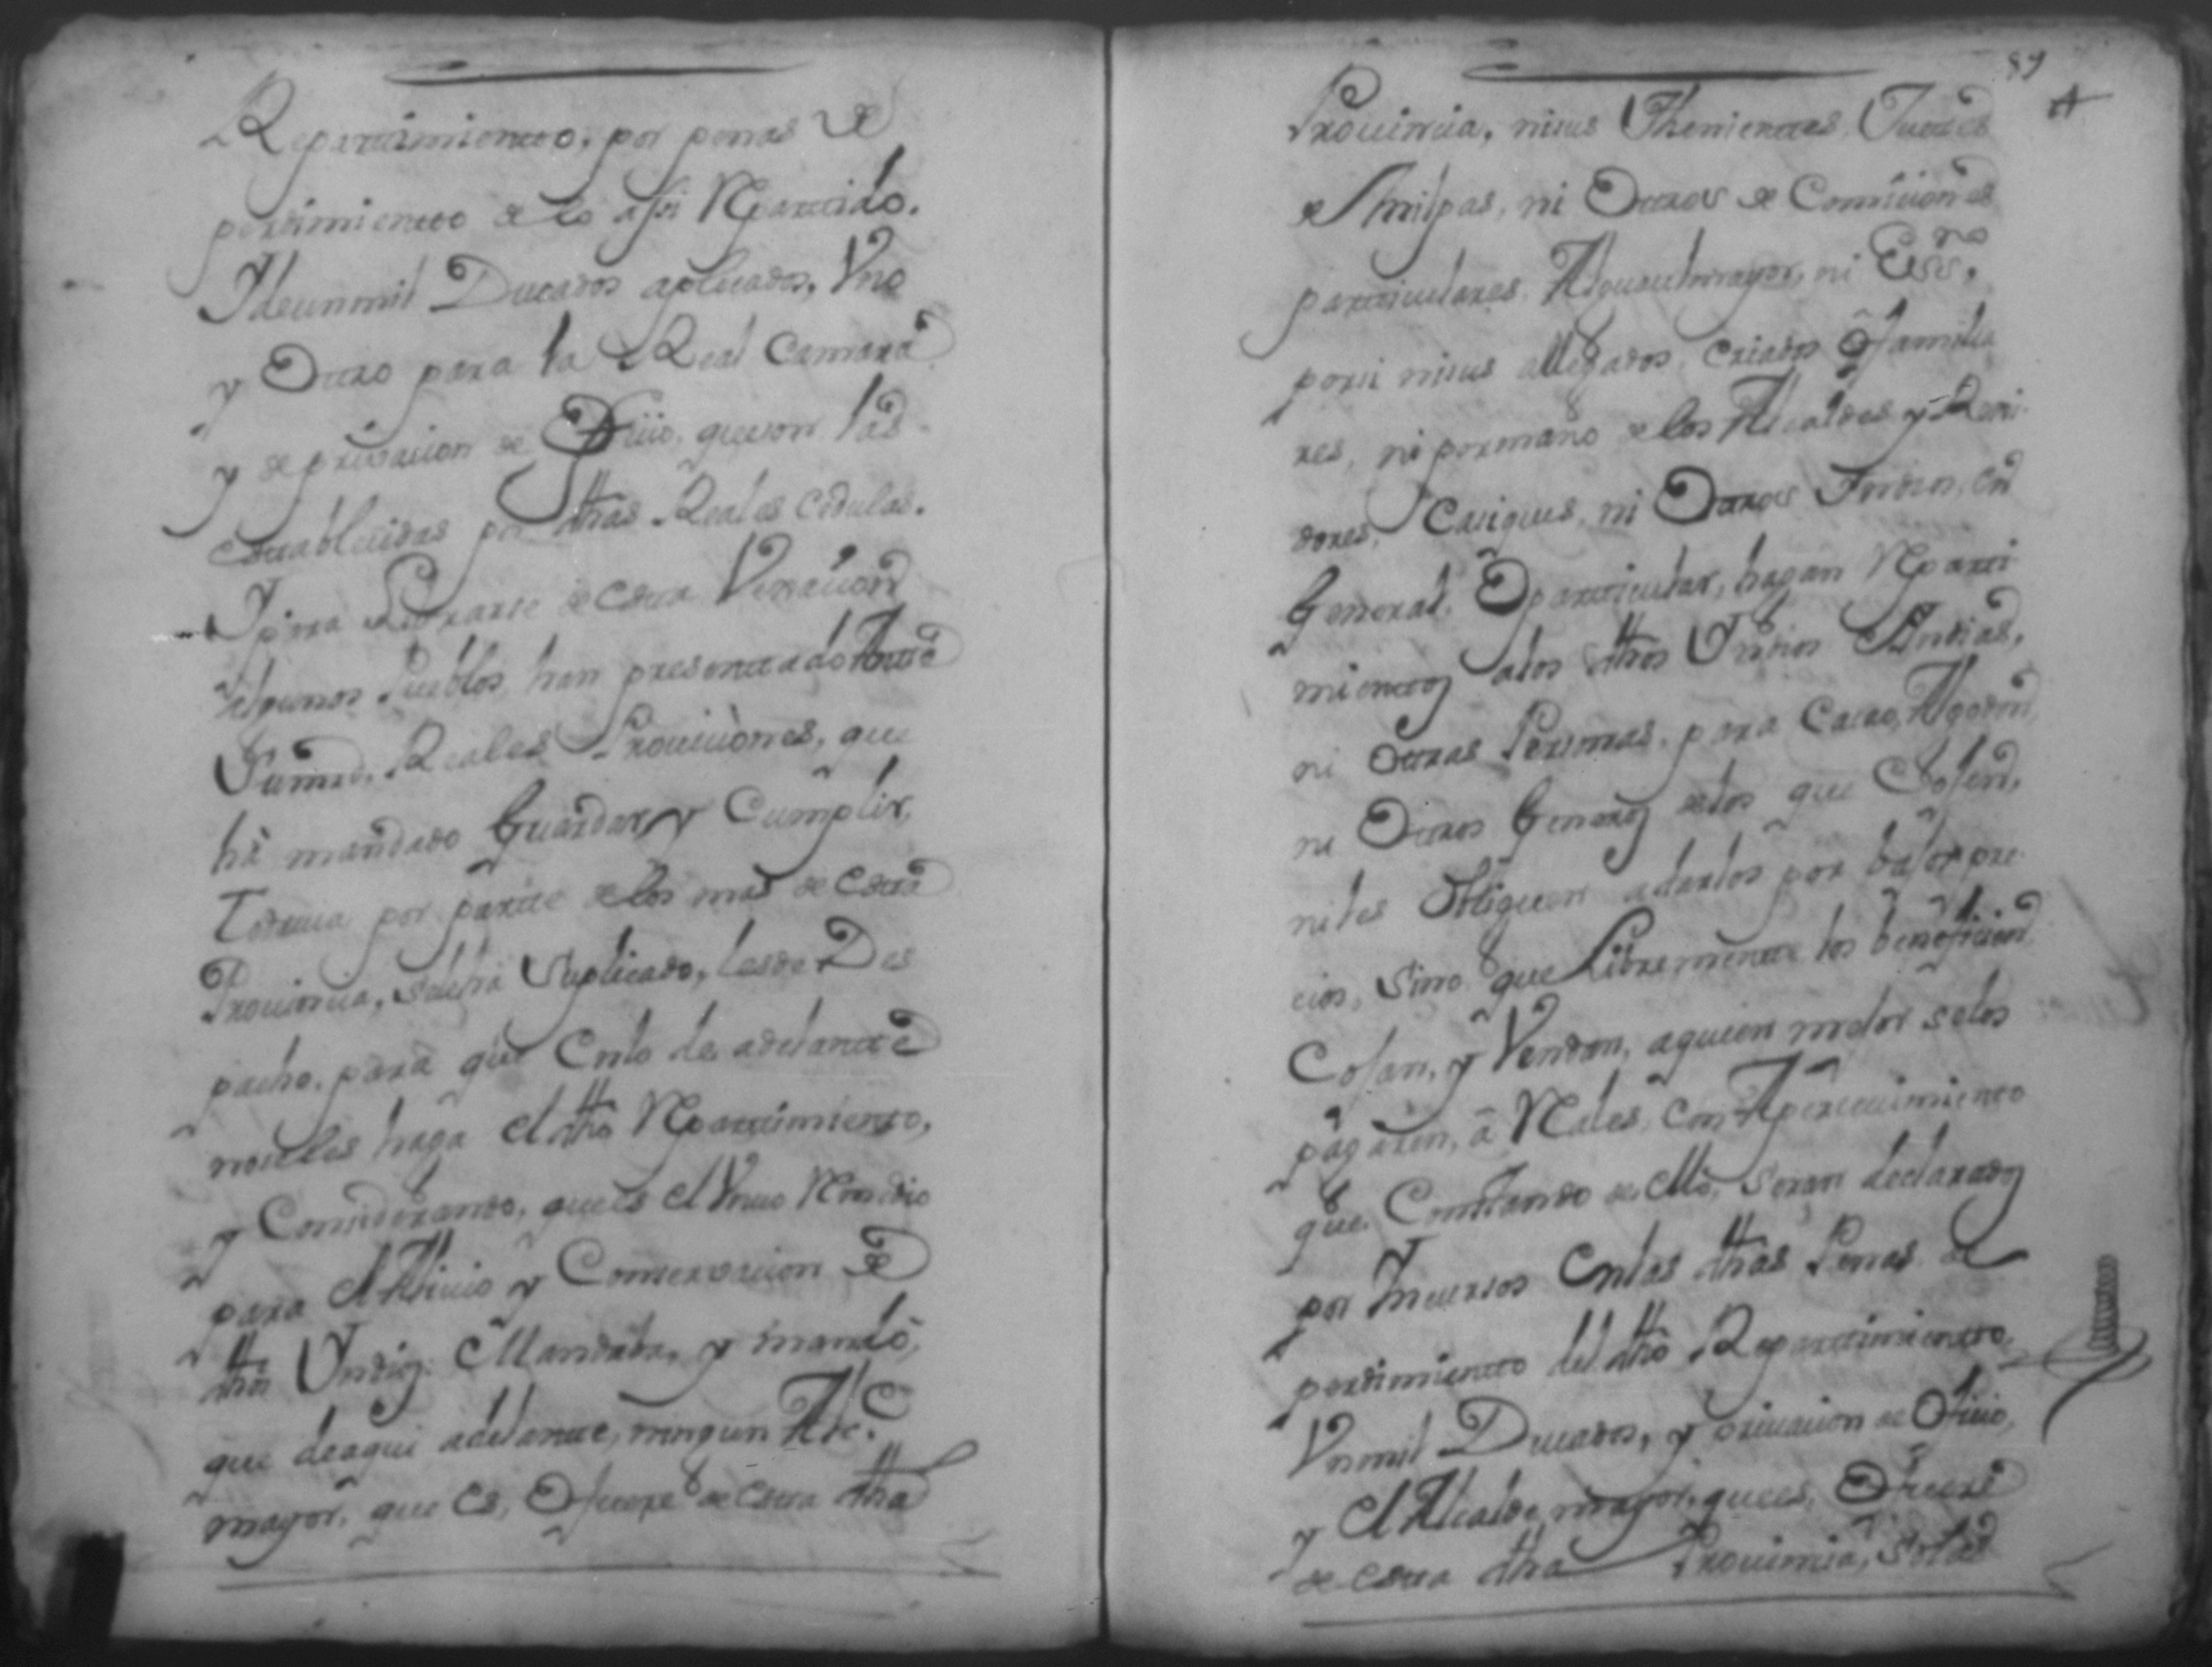 Repartimiento, por penas de
perdimiento de lo assi Repartido.
Y de un mil Ducados aplicados, Vno
y Otro para la Real Camara
y de priuacion de Ofiçio, que son las
establecidas por dhas Reales Cedulas.
Y para Librarse de esta Vexacion
algunos Pueblos han presentado Ante
Su mrd. Reales Prouiciones, que
há mandado Guardar, y Cumplir,
Todauia por parte de los mas de esta
Prouincia, sele ha Suplicado, les de Des
pacho, para que Enlo de adelante
no seles haga el dho Repartimiento,
y Considerando, que es el Vnico Remedio
para el Aliuio y Conseruacion de
dhos Yndios: Mandaba, y mandó,
que de aqui adelante, ningun Alce.
mayor, que es, O fuere de esta dha
87
Prouincia, ni sus Thenientes, Jueces
de Milpas, ni Otros de Comiciones
particulares, Alguacil mayor, ni Essno.
por si ni sus allegados, Criados, O familia
res, ni por mano de los Alcaldes y Regi
dores, Caciques, ni Otros Yndios, en
General, O particular, hagan Reparti
mientos a los dhos Yndios e Yndias,
ni otras Personas, para Cacao, Algodon,
ni Otros Generos de los que Cojen,
ni les Obliguen a darlos por bajos pre
cios, Sino que Libremente los beneficien
Cojan, y Vendan, a quien mejor se los
pagaren, â Reales, Con Aperceuimiento
que Constando de ello, seran declarados
por Yncursos Enlas dhas Penas de
perdimiento del dho Repartimiento,
Vn mil Ducados, y priuacion de Oficio,
y el Alcalde mayor, que es, O fuere
de esta dha Prouincia, Solas